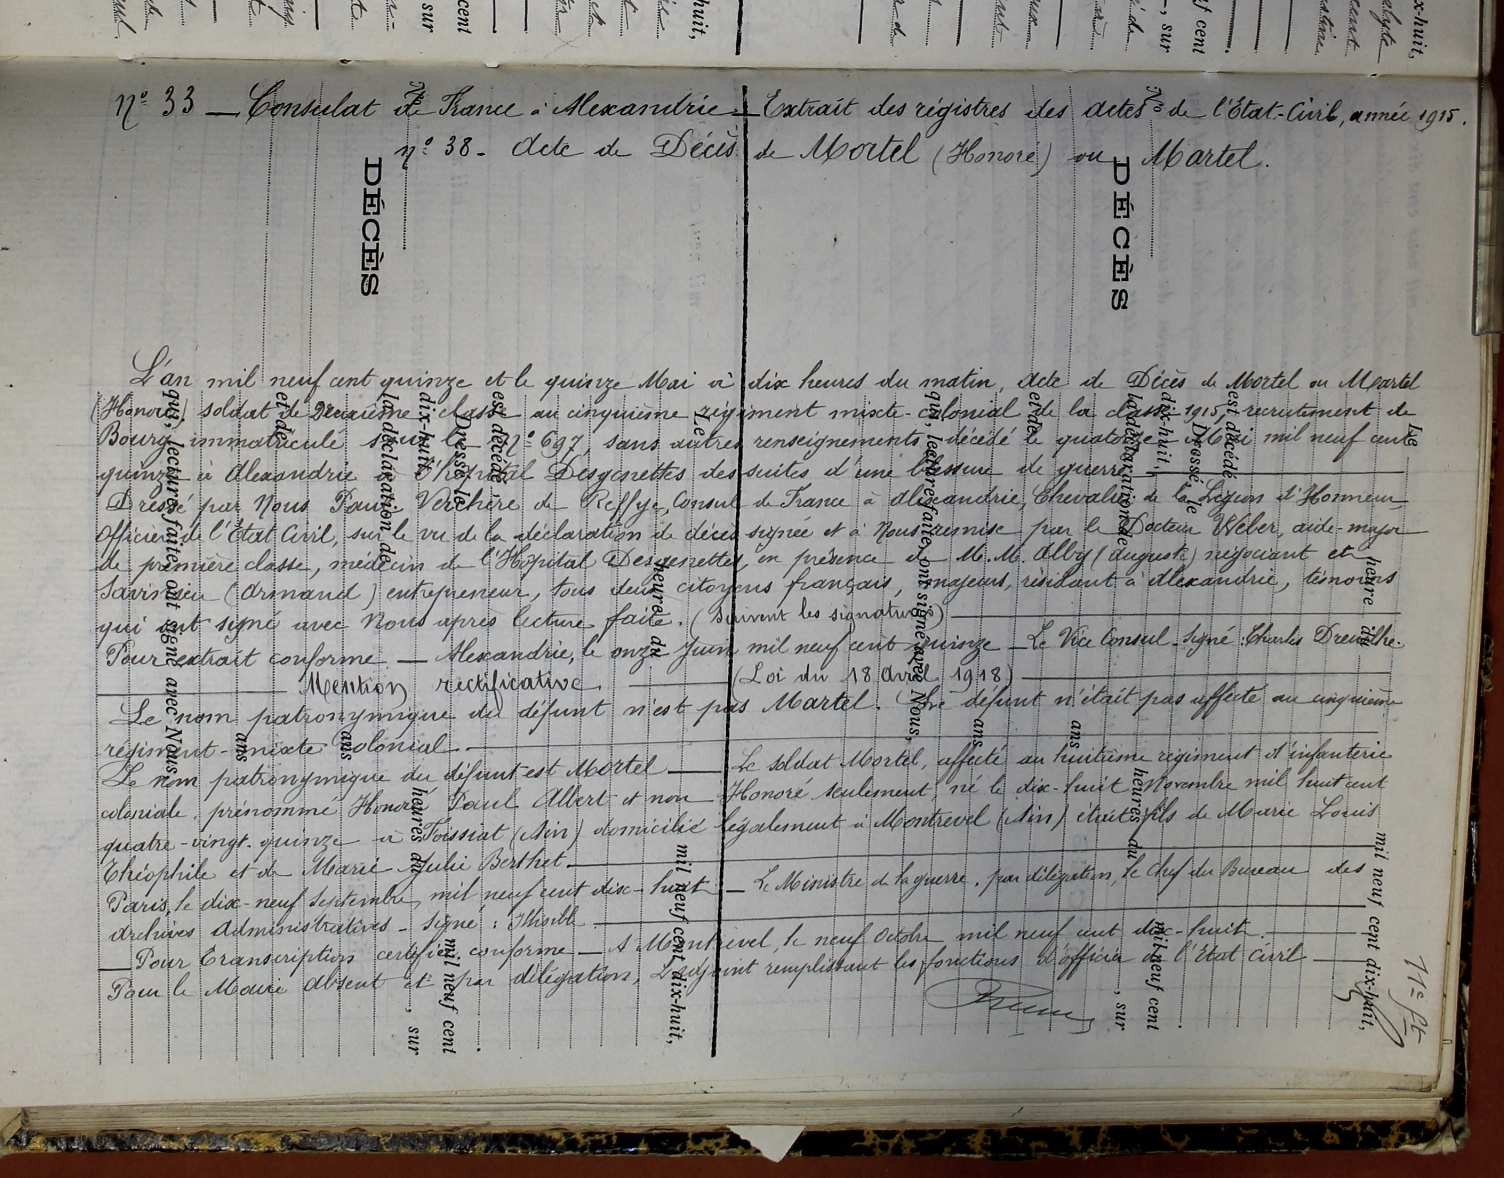 N° 33 — Consulat de France à Alexandrie — Extrait des régistres des actes de l'Etat-Civil, année 1915.
n° 38 - Acte de Décès de Mortel (Honoré) ou Martel.
DÉCÈS
DÉCÈS
L'an mil neuf cent quinze et le quinze Mai à dix heures du matin, acte de Décès de Mortel ou Martel
(Honoré) soldat de deuxième classe au cinquième régiment mixte-colonial de la classe 1915, recrutement de
Bourg immatriculé sous le N° 697, sans autres renseignements décédé le quatorze Mai mil neuf cent
quinze à Alexandrie à l'hôpital Desgenettes des suites d'une blessure de guerre —
Dressé par Nous Paul Verchère de Reffye, Consul de France à Alexandrie, Chevalier de la Légion d'Honneur,
Officier de l'Etat Civil, sur le vu de la déclaration de décès signée et à Nous remise par le Docteur Weber, aide-major
de première classe, médecin de l'Hôpital Desgenettes, en présence de M.M. Alby (Auguste) négociant et
Savinien (Armand) entrepreneur, tous deux citoyens français, majeurs, résidant à Alexandrie, témoins
qui ont signé avec Nous après lecture faite. (Suivent les signatures) —
Pour extrait conforme — Alexandrie, le onze Juin mil neuf cent quinze — Le Vice Consul - signé : Charles
— Mention rectificative. — (Loi du 18 Avril 1918) —
Le nom patronymique du défunt n'est pas Martel. Le défunt n'était pas affecté au cinquième
régiment-mixte Colonial —
Le nom patronymique du défunt est Mortel — Le soldat Mortel, affecté au huitième régiment d'infanterie
coloniale, prénommé Honoré Paul Albert et non Honoré seulement, né le dix-huit Novembre mil huit cent
quatre-vingt-quinze à Foissiat (Ain) domicilié légalement à Montrevel (Ain) était fils de Marie Louis
Théophile et de Marie Julie Berthet —
Paris, le dix-neuf Septembre mil neuf cent dix-huit — Le Ministre de la guerre, par délégation, le Chef du Bureau des
Archives Administratives - signé : Illisible —
— Pour transcription certifiée conforme — A Montrevel, le neuf Octobre mil neuf cent dix-huit. —
Pour le Maire Absent et par délégation, L'adjoint remplissant les fonctions d'officier de l'Etat Civil —